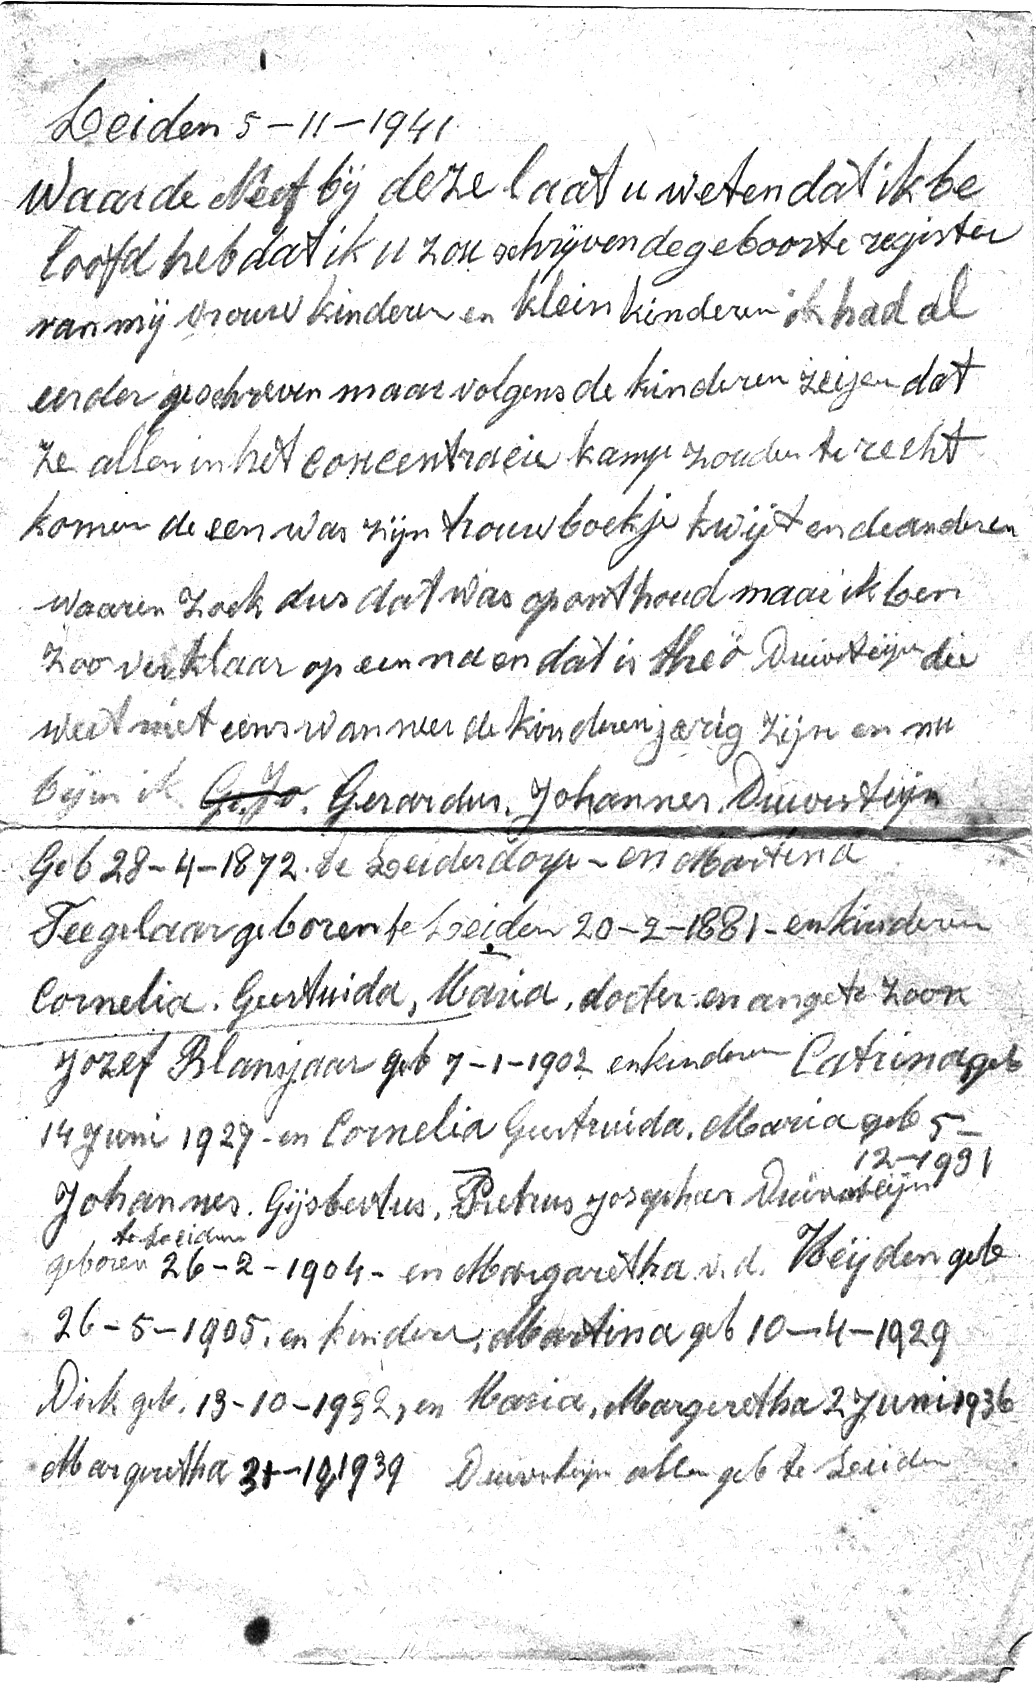 Leiden 5-11-1941
Waarde Neef bij deze laat u weten dat ik be
loofd heb dat ik u zou schrijven de geboorte register
van mij vrouw kinderen en klein kinderen ik had al
eerder geschreven maar volgens de kinderen zeijen dat
ze allen in het concentracie kamp zouden te recht
komen de een was zijn trouwboekje kwijt en de anderen
waaren zoek dus dat was oponthoud maar ik ben
zoo ver klaar op een na en dat is theo Duivesteijn die
weet niet eens wanneer de kinderen jarig zijn en nu
bijin ik G. Jo. Gerardus. Johannes. Duivesteijn
Geb 28-4-1872. te Leiderdorp - en Martina
Teegelaar geboren te Leiden 20-2-1881 - en kinderen
Cornelia. Geertuida, Maria, docter en angete zoon
Jozef Blansjaar geb 7-1-1902 en kinderen Catrina geb
14 Juni 1927 - en Cornelia Geertruida. Maria geb 5-
12-1931
Johannes. Gijsbertus. Pietrus Josephus Duivesteijn
te Leiden
geboren 26-2-1904 - en Margaretha v. d. Heijden geb
26-5-1905. en kinderen, Martina geb 10-4-1929
Dirk geb. 13-10-1932, en Maria, Margeretha 2 Juni 1936
Margeretha 1939 Duivesteijn allen geb te Leiden